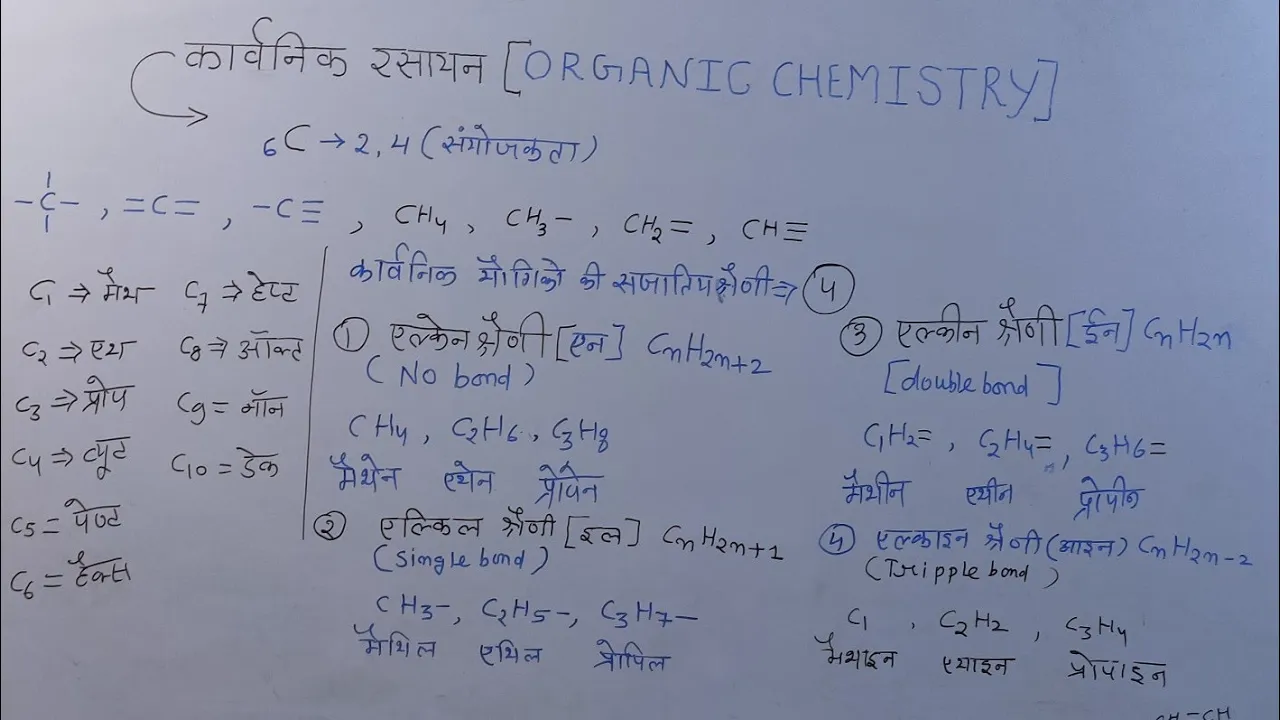 कार्वनिक रसायन [ORGANIC CHEMISTRY]
₆C → 2, 4 (संयोजकता)
-C-, =C=, -C≡, CH₄, CH₃-, CH₂=, CH≡
C₁ ⇒ मैथ
C₂ ⇒ एथ
C₃ ⇒ प्रोप
C₄ ⇒ ब्यूट
C₅ = पेण्ट
C₆ = हैक्स
C₇ ⇒ हेप्ट
C₈ ⇒ ऑक्ट
C₉ = नॉन
C₁₀ = डेक
कार्वनिक यौगिको की सजातिय श्रैणी ⇒ 4
① एल्केन श्रैणी [एन] CₙH₂ₙ₊₂
(No bond)
CH₄, C₂H₆, C₃H₈
मैथेन एथेन प्रोपेन
② एल्किल श्रैणी [इल] CₙH₂ₙ₊₁
(Single bond)
CH₃-, C₂H₅-, C₃H₇-
मैथिल एथिल प्रोपिल
③ एल्कीन श्रैणी [ईन] CₙH₂ₙ
[double bond]
C₁H₂=, C₂H₄=, C₃H₆=
मैथीन एथीन प्रोपीन
④ एल्काइन श्रैणी (आइन) CₙH₂ₙ₋₂
(Tripple bond)
C₁, C₂H₂, C₃H₄
मैथाइन एथाइन प्रोपाइन
CH-CH